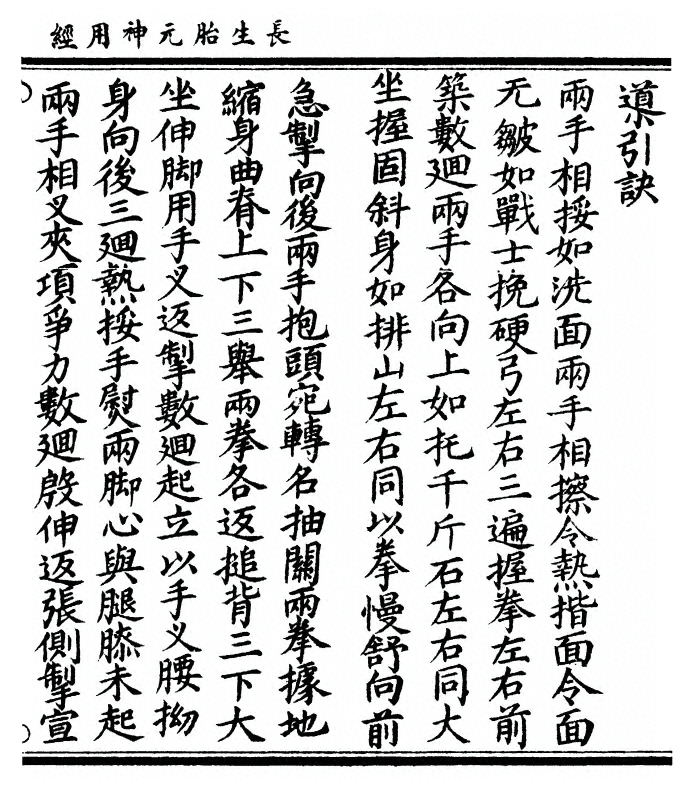 長生胎元神用經
導引訣
兩手相挼如洗面兩手相擦令熱揩面令面
无皺如戰士挽硬弓左右三遍握拳左右前
築數廻兩手各向上如托千斤石左右同大
坐握固斜身如排山左右同以拳慢舒向前
急掣向後兩手抱頭宛轉名抽關兩拳據地
縮身曲脊上下三舉兩拳各返搥背三下大
坐伸脚用手义返掣數廻起立以手义腰拗
身向後三廻熱挼手熨兩脚心與腿膝未起
兩手相义夾項爭力數廻殷伸返張側掣宣